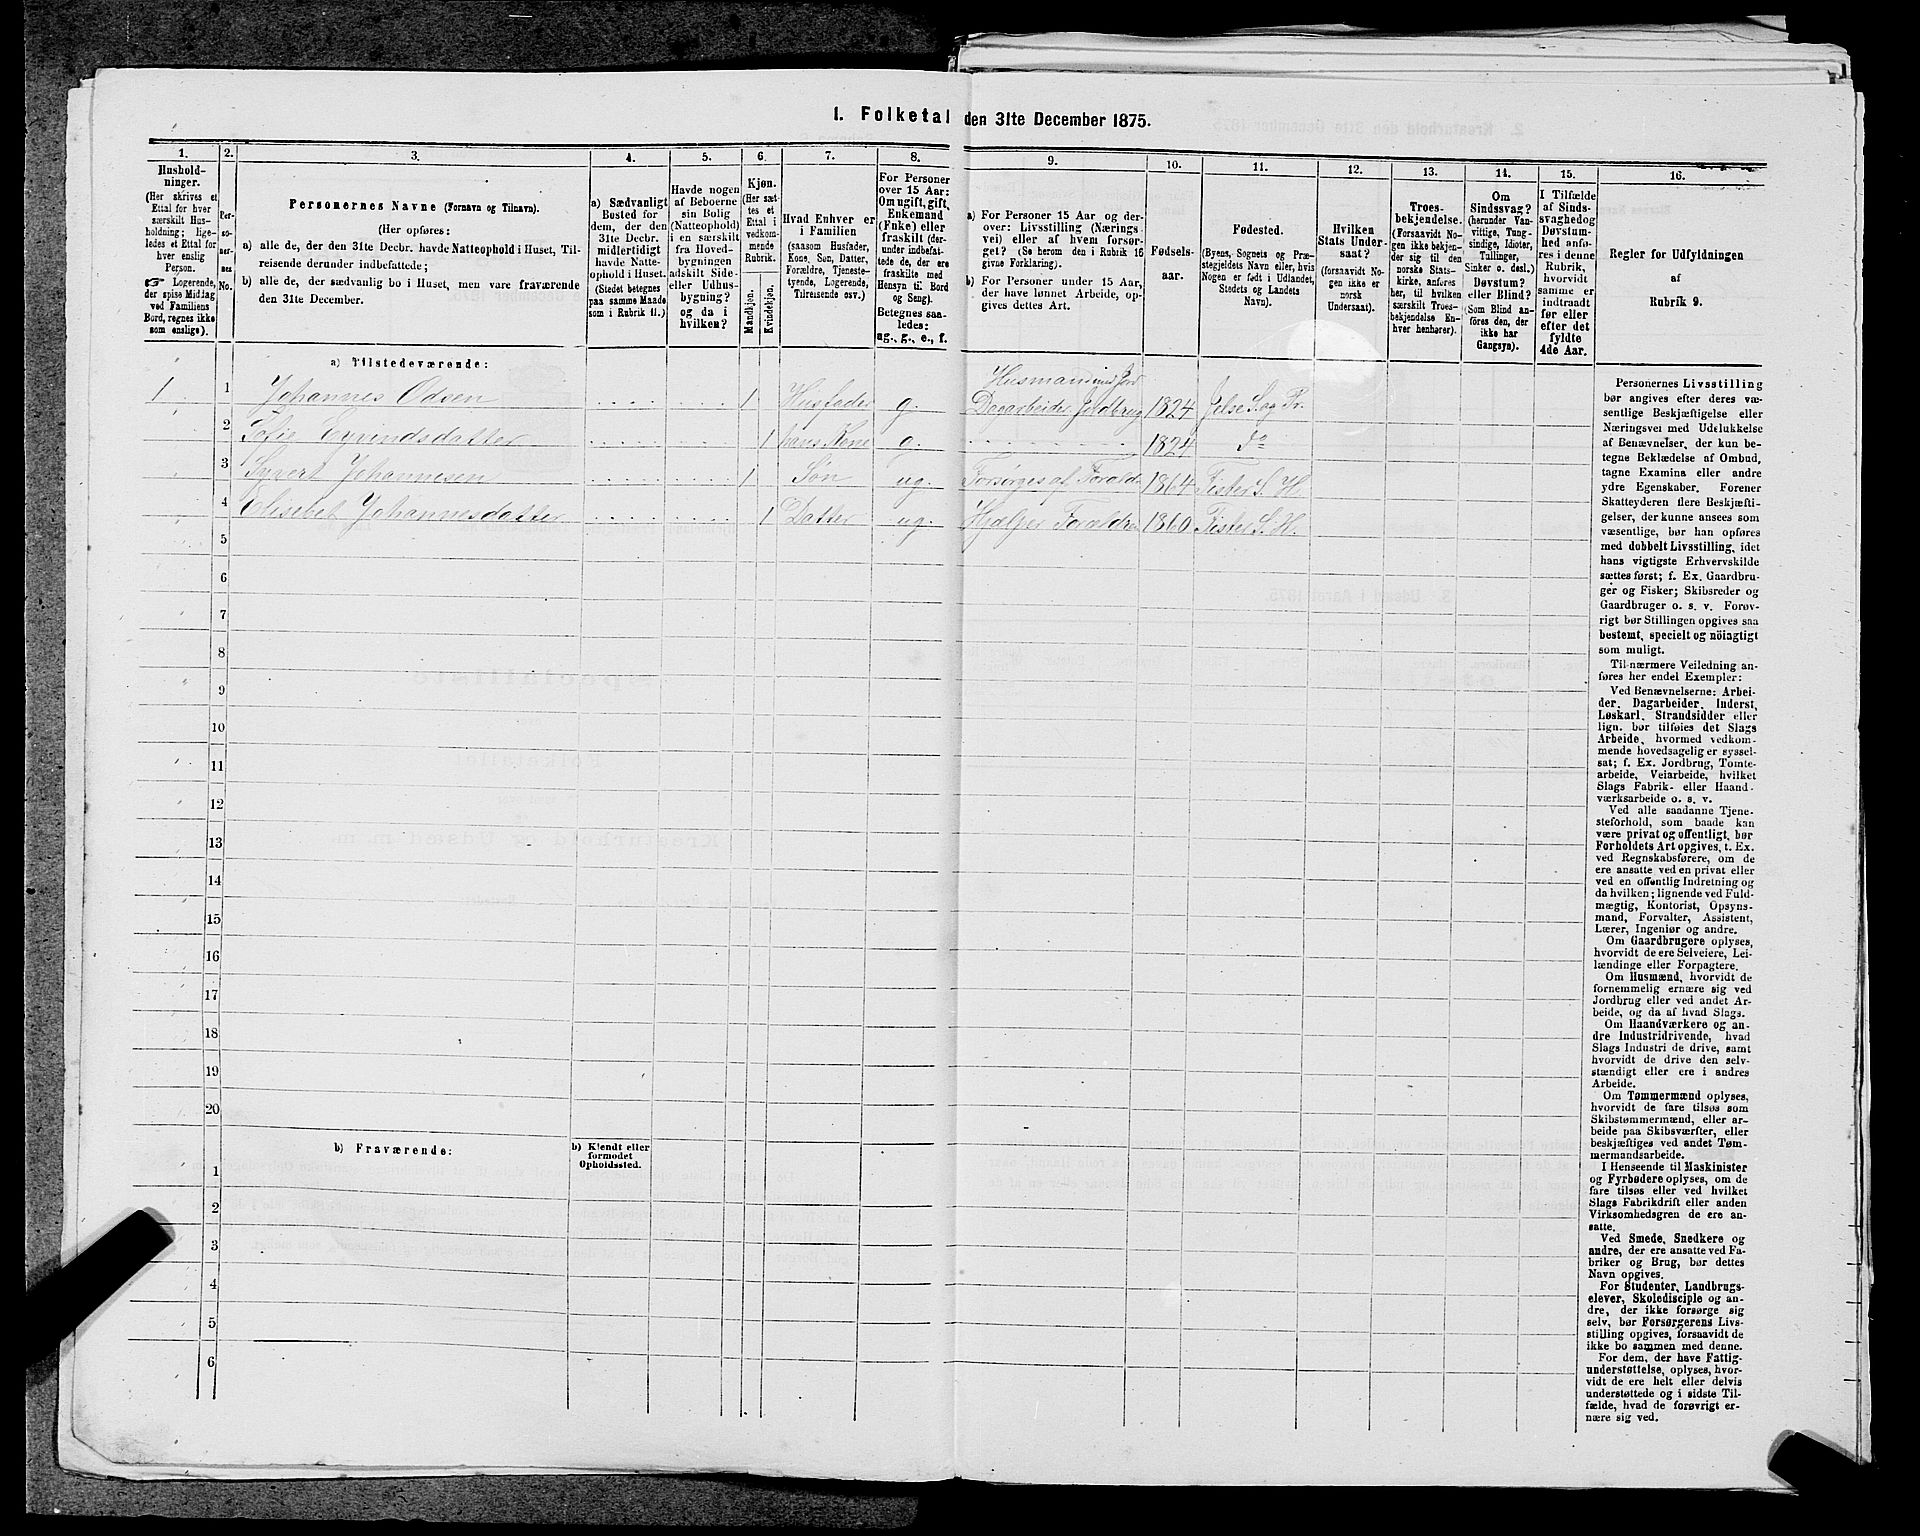 1. Folketal den 31te December 1875.
1.
Husholdninger.
(Her skrives et
Ettal for hver
særskilt Husholdning;
ligeledes et Ettal for
hver enslig
Person.
☞ Logerende,
der spise Middag
ved Familiens
Bord, regnes ikke
som enslige).
2.
Personernes
No.
3.
Personernes Navne (Fornavn og Tilnavn).
(Her opføres:
a) alle de, der den 31te Decbr. havde Natteophold i Huset, Tilreisende derunder indbefattede;
b) alle de, der sædvanlig bo i Huset, men vare fraværende
den 31te December.
4.
a) Sædvanligt
Bosted for
dem, der den
31te Decbr.
midlertidigt
havde Natteophold i Huset.
(Stedet betegnes
paa samme Maade
som i Rubrik 11.)
5.
Havde nogen
af Beboerne
sin Bolig
(Natteophold)
i en særskilt
fra Hovedbygningen
adskilt Side-
eller Udhusbygning?
og da i
hvilken?
6.
Kjøn.
(Her sættes et
Ettal i
vedkommende
Rubrik.
Mandkjøn.
Kvindekjøn.
7.
Hvad Enhver er
i Familien
(saasom Husfader,
Kone, Søn, Datter,
Forældre, Tjenestetyende, Logerende,
Tilreisende osv.)
8.
For Personer
over 15 Aar:
Om ugift, gift,
Enkemand
(Enke) eller
fraskilt (derunder indbefattede de, der ere
fraskilte med
Hensyn til Bord
og Seng).
Betegnes saaledes:
ug., g., e., f.
9.
a) For Personer 15 Aar og derover: Livsstilling (Næringsvei) eller af hvem forsørget? (Se herom den i Rubrik 16
givne Forklaring).
b) For Personer under 15 Aar,
der have lønnet Arbeide, opgives dettes Art.
10.
Fødselsaar.
11.
Fødested.
(Byens, Sognets og Præstegjeldets Navn eller, hvis
Nogen er født i Udlandet,
Stedets og Landets
Navn).
12.
Hvilken
Stats Undersaat?
(forsaavidt Nogen ikke er
norsk
Undersaat).
13.
Troesbekjendelse.
(Forsaavidt Nogen ikke bekjender sig til den
norske Statskirke, anføres
her, til hvilken
særskilt Troesbekjendelse Enhver henhører).
14.
Om
Sindssvag?
(herunder Vanvittige, Tungsindige, Idioter,
Tullinger,
Sinker o. desl.)
Døvstum?
eller Blind?
(Som Blind anføres den, der
ikke har
Gangsyn).
15.
I Tilfælde
af Sindssvaghed og
Døvstumhed anføres i denne
Rubrik,
hvorvidt
samme er
indtraadt
før eller
efter det
fyldte
4de Aar.
16.
Regler for Udfyldningen
af
Rubrik 9.
a) Tilstedeværende:
1 1 Johannes Odsen 1 Husfader g. Husmand med Jord Dagarbeider Jordbrug 1824 Jelse S. og Pr.
2 Sofie Eyvindsdatter 1 hans Kone g. 1824 do
3 Syvert Johannesen 1 Søn ug. Forsørges af Foræld. 1864 Fister S. H.
4 Elisebet Johannesdatter 1 Datter ug. Hjælper Forældrene 1860 Fister S. H.
5
6
7
8
9
10
11
12
13
14
15
16
17
18
19
20
b) Fraværende:
b) Kjendt eller
formodet
Opholdssted.
1
2
3
4
5
6
Personernes Livsstilling
bør angives efter deres væsentlige Beskjæftigelse eller
Næringsvei med Udelukkelse
af Benævnelser, der kun betegne Beklædelse af Ombud,
tagne Examina eller andre
ydre Egenskaber. Forener
Skatteyderen flere Beskjæftigelser, der kunne ansees som
væsentlige, bør han opføres
med dobbelt Livsstilling, idet
hans vigtigste Erhvervskilde
sættes først; f. Ex. Gaardbruger og Fisker; Skibsreder og
Gaardbruger o. s. v. Forøvrigt bør Stillingen opgives saa
bestemt, specielt og nöiagtigt
som muligt.
Til nærmere Veiledning anføres her endel Exempler:
Ved Benævnelserne: Arbeider, Dagarbeider, Inderst,
Løskarl, Strandsidder eller
lign. bør tilføies det Slags
Arbeide, hvormed vedkommende hovedsagelig er sysselsat; f. Ex. Jordbrug, Tomtearbeide, Veiarbeide, hvilket
Slags Fabrik- eller Haandværksarbeide o. s. v.
Ved alle saadanne Tjenesteforhold, som baade kan
være privat og offentligt, bør
Forholdets Art opgives, f. Ex.
ved Regnskabsførere, om de
ere ansatte ved en privat eller
ved en offentlig Indretning og
da hvilken; lignende ved Fuldmægtig, Kontorist, Opsynsmand, Forvalter, Assistent,
Lærer, Ingeniør og andre.
Om Gaardbrugere oplyses,
hvorvidt de ere Selveiere, Leilændinge eller Forpagtere.
Om Husmænd, hvorvidt de
fornemmelig ernære sig ved
Jordbrug eller ved andet Arbeide, og da af hvad Slags.
Om Haandværkere og andre Industridrivende, hvad
Slags Industri de drive, samt
hvorvidt de drive den selvstændigt eller ere i andres
Arbeide.
Om Tømmermænd oplyses,
hvorvidt de fare tilsøs som
Skibstømmermænd, eller arbeide paa Skibsværfter, eller
beskjæftiges ved andet Tømmermandsarbeide.
I Henseende til Maskinister
og Fyrbødere oplyses, om de
fare tilsøs eller ved hvilket
Slags Fabrikdrift eller anden
Virksomhedsgren de ere ansatte.
Ved Smede, Snedkere og
andre, der ere ansatte ved Fabriker og Brug, bør dettes
Navn opgives.
For Studenter, Landbrugselever, Skoledisciple og andre, der ikke forsørge sig
selv, bør Forsørgerens Livsstilling opgives, forsaavidt de
ikke bo sammen med denne.
For dem, der have Fattigunderstøttelse, oplyses, hvorvidt de ere helt eller delvis
understøttede og i sidste Tilfælde, hvad de forøvrigt ernære sig ved.